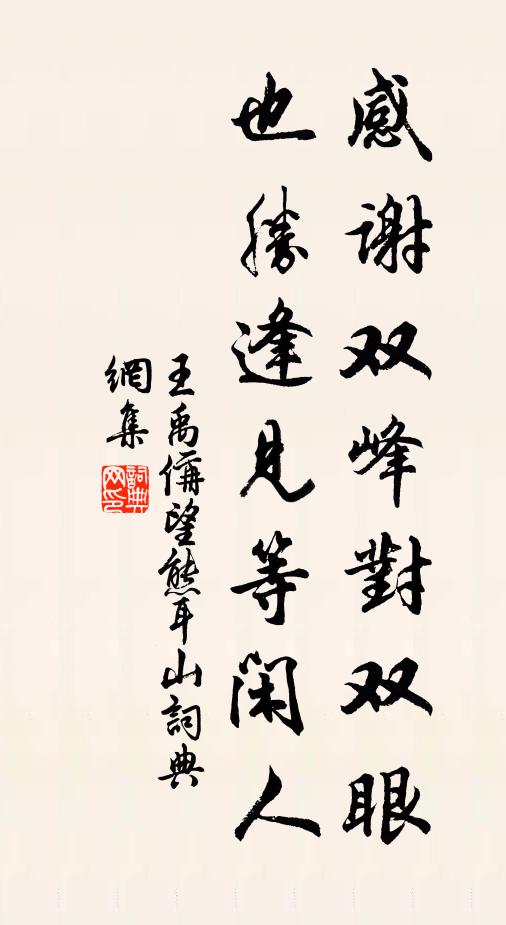 感谢双峰對双眼
也勝逢见等闲人
王禹偁望熊耳山詞典
網集
詞典網印